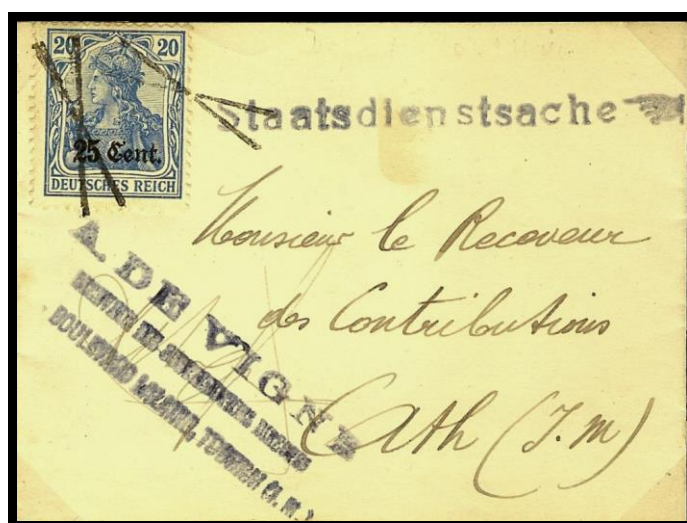 20 20
25 Cent.
DEUTSCHES REICH
Staatsdienstsache
Monsieur le Receveur
des Contributions
Ath (J.M)
A. DE VIGNE
BOULEVARD LALAING, TOURNAI (J.M.)